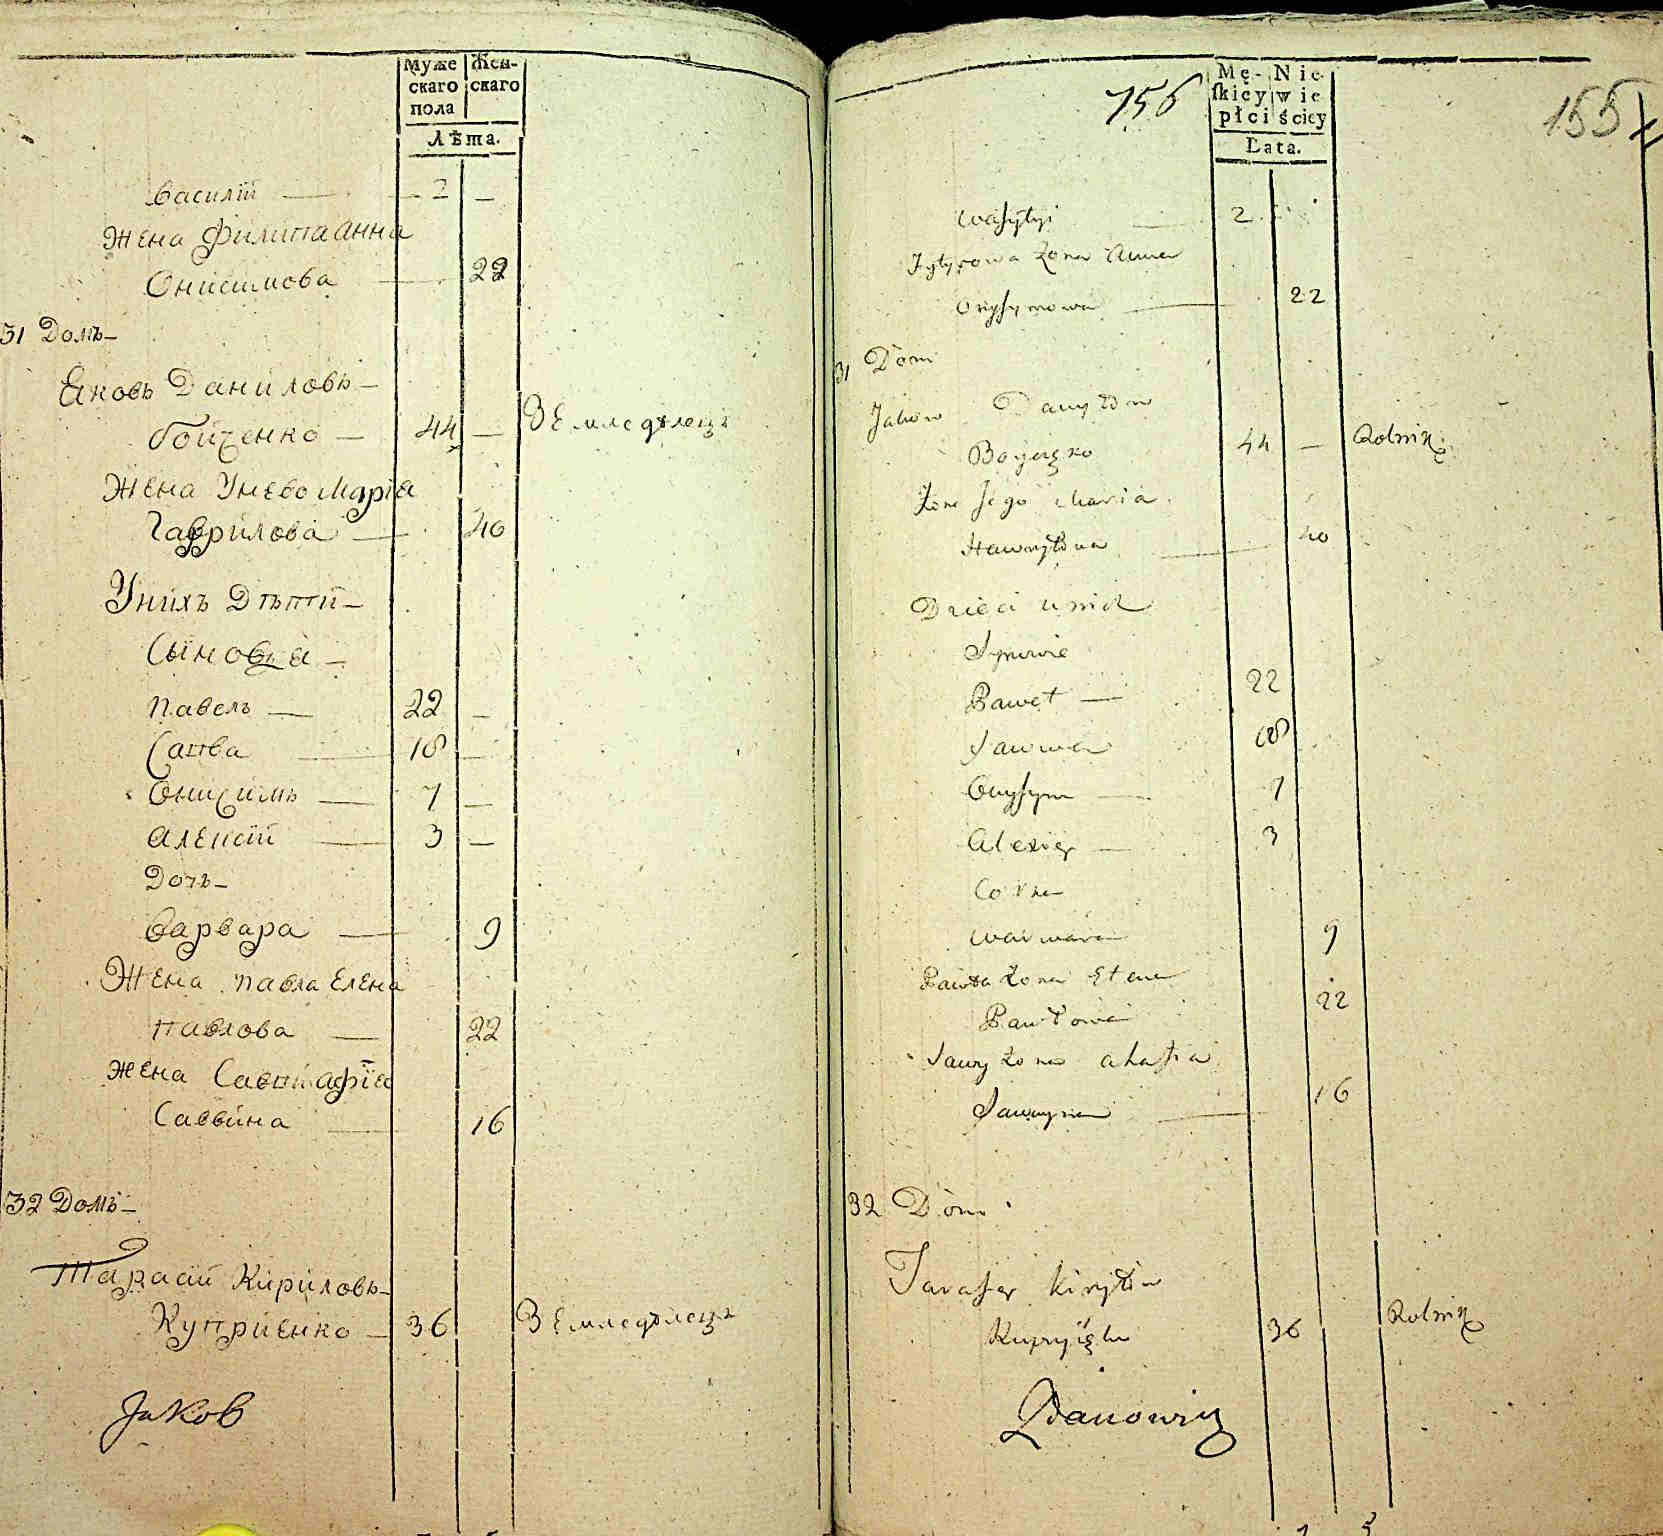 Муже Жен-
скаго скаго
пола
Лѣта.
Василiй — 2 —
Жена Филипа Анна
Онисимова — 22
31 Домъ —
Яковъ Даниловъ —
44 — Земледѣлецъ
Жена У него Марiя
Гаврилова — 40
У нихъ Дѣти —
Сыновья —
Павелъ — 22 —
Савва — 18 —
Онисимъ — 7 —
Алексiй — 3 —
Дочь —
Варвара — 9
Жена Павла Елена
Павлова — 22
Жена
Саввина — 16
32 Домъ —
Тарасiй Кириловъ —
Куприенко — 36 Земледѣлецъ
Jakob
156
155
Mę- Nie
skiey wie
płci ściey
Lata.
Wasylyi — 2
żona Anna
Onysymowa — 22
31 Dom
Jakow Danyłow
44 — Rolnik
Żona Jego Maria
Hawryłowa — 40
Dzieci u nich
Synowie
Paweł — 22
Sawwa 18
Onysym — 7
Alexiey — 3
Corka
Warwara 9
Pawła żona Elena
Pawłowa 22
Sawy żona Ahafia
Sawyna — 16
32 Dom
Tarasiey Kiryłow
36 Rolnik